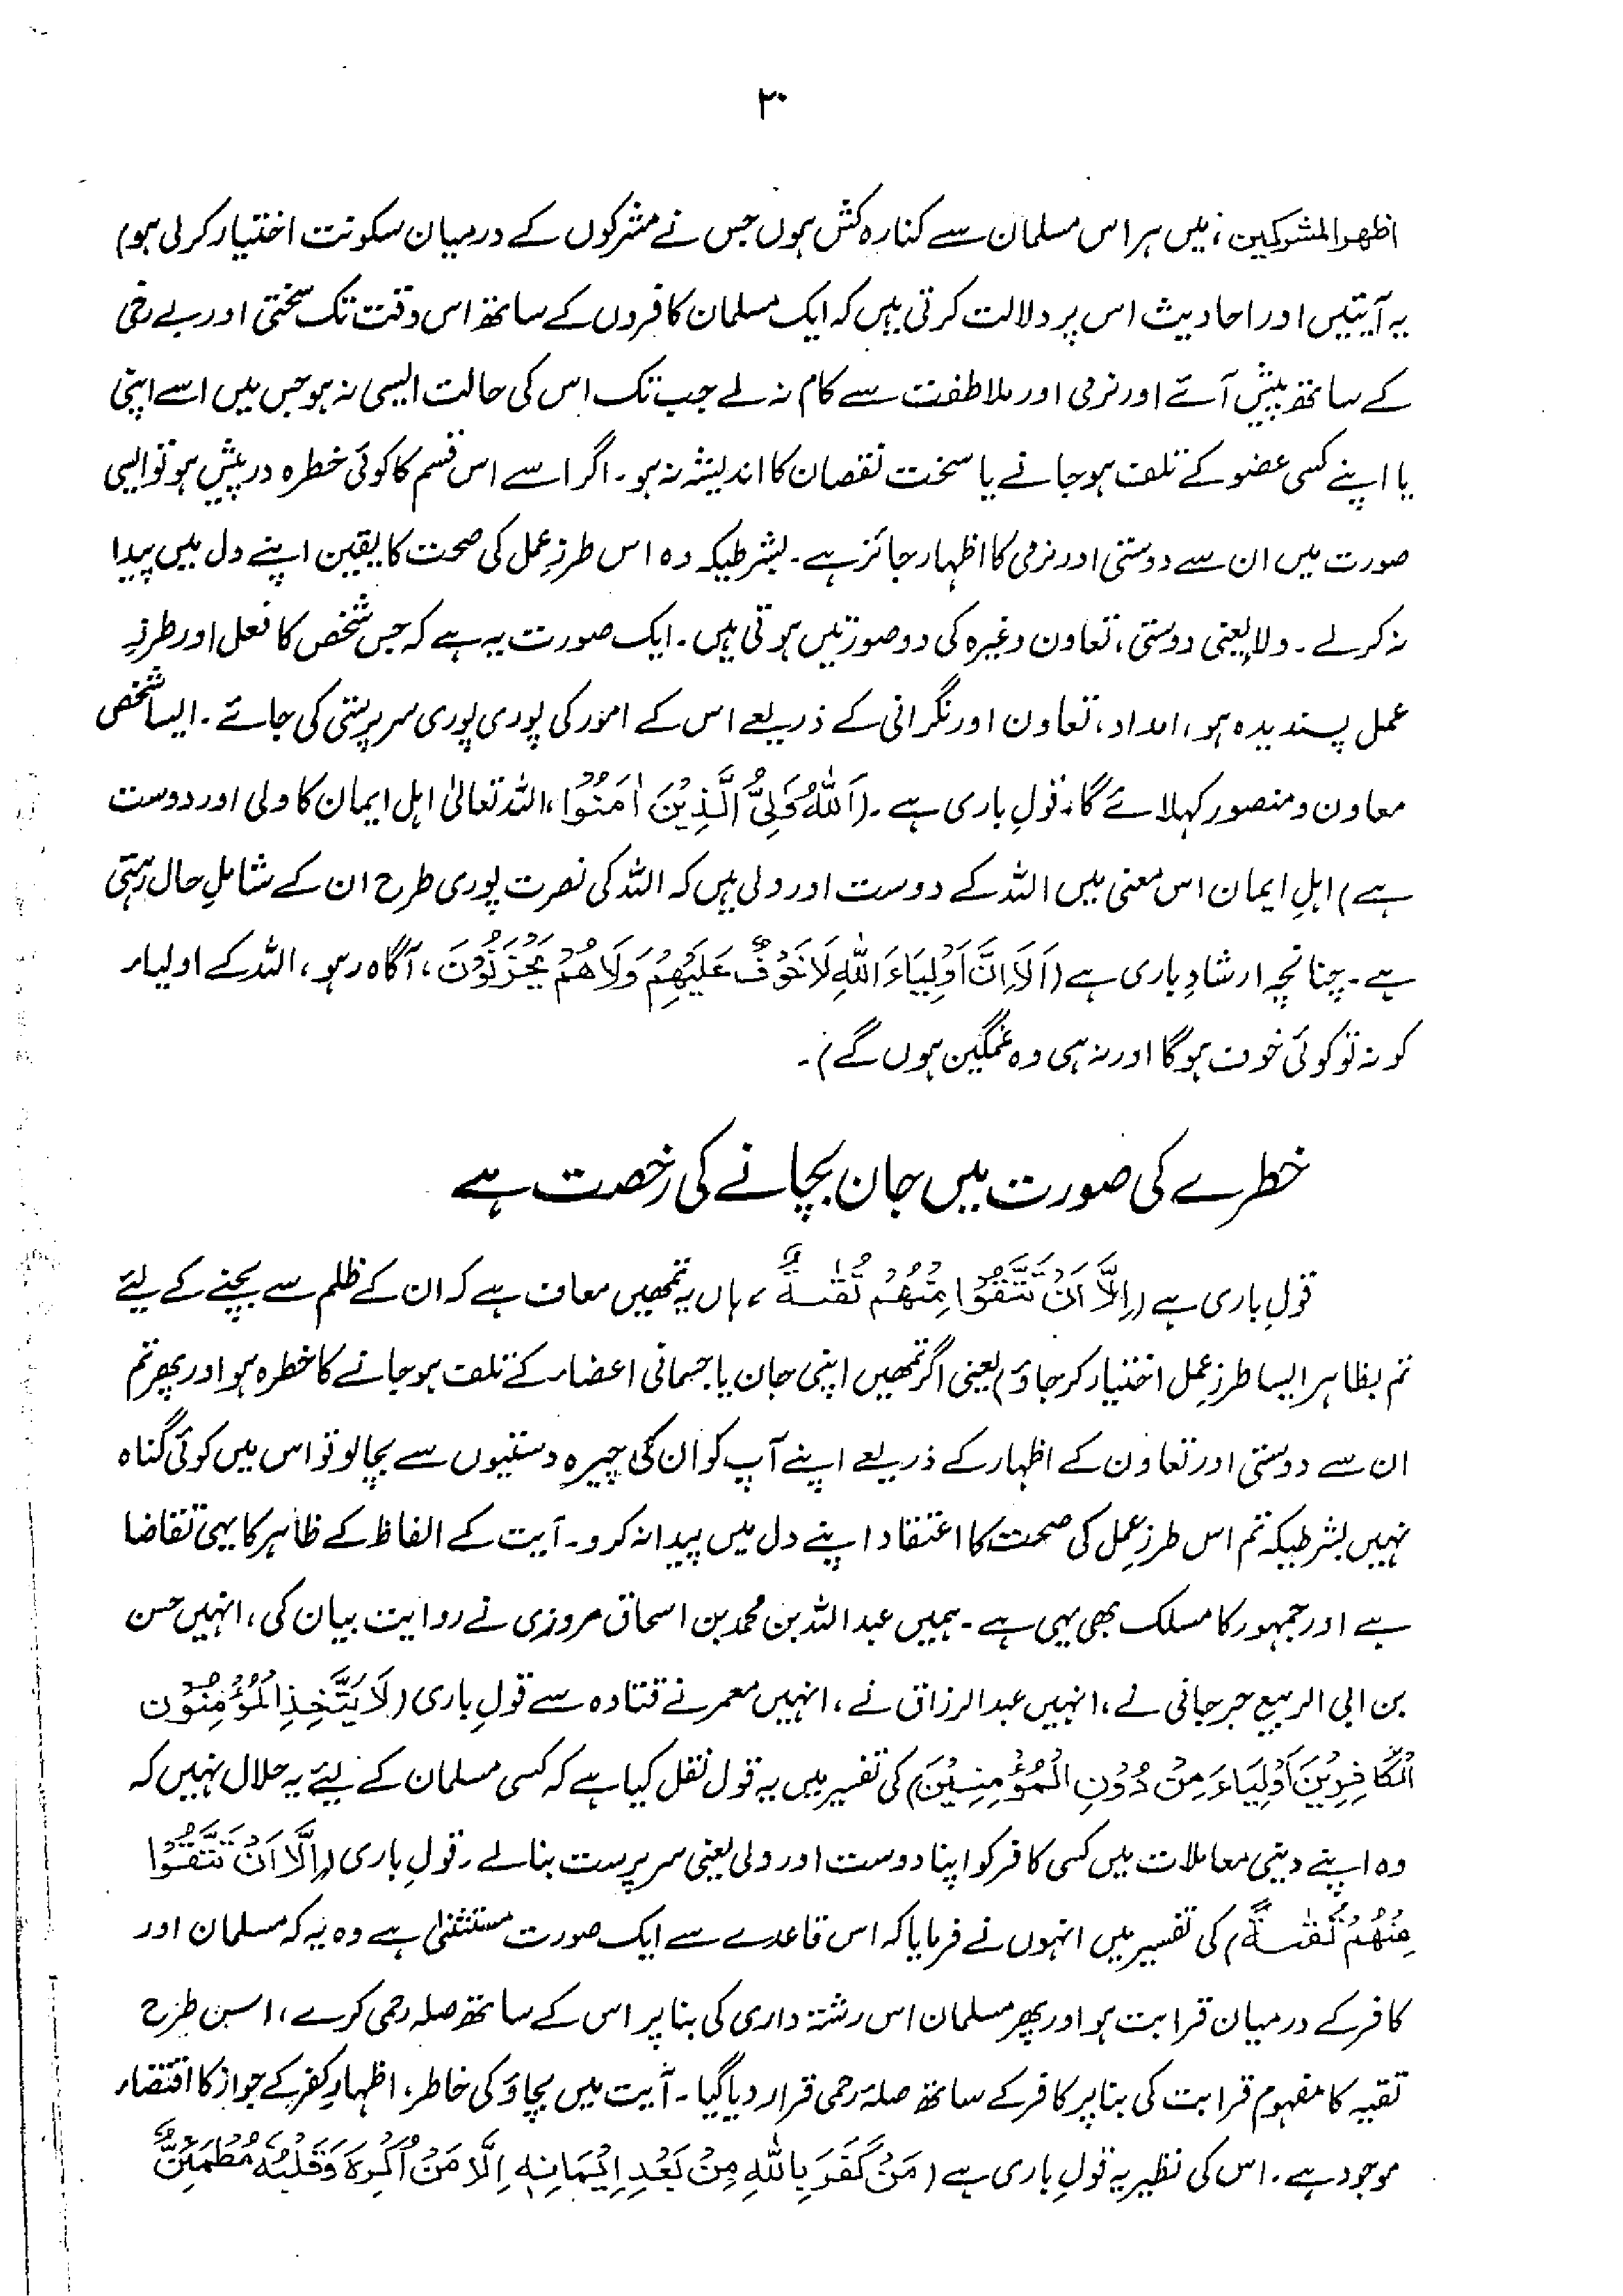 ۳۰
اظہر المشرکین، میں ہر اس مسلمان سے کنارہ کش ہوں جس نے مشرکوں کے درمیان سکونت اختیار کر لی ہو)
یہ آیتیں اور احادیث اس پر دلالت کرتی ہیں کہ ایک مسلمان کافروں کے ساتھ اس وقت تک سختی اور بے رخی
کے ساتھ پیش آئے اور نرمی اور ملاطفت سے کام نہ لے جب تک اس کی حالت ایسی نہ ہو جس میں اسے اپنی
یا اپنے کسی عضو کے تلف ہو جانے یا سخت نقصان کا اندیشہ نہ ہو۔ اگر اسے اس قسم کا کوئی خطرہ درپیش ہو تو ایسی
صورت میں ان سے دوستی اور نرمی کا اظہار جائز ہے۔ بشرطیکہ وہ اس طرزِ عمل کی صحت کا یقین اپنے دل میں پیدا
نہ کرلے۔ ولا یعنی دوستی، تعاون وغیرہ کی دو صورتیں ہوتی ہیں۔ ایک صورت یہ ہے کہ جس شخص کا فعل اور طرزِ
عمل پسندیدہ ہو، امداد، تعاون اور نگرانی کے ذریعے اس کے امور کی پوری پوری سرپرستی کی جائے۔ ایسا شخص
معاون و منصور کہلائے گا، قولِ باری ہے۔ (اَللّٰهُ وَلِيُّ الَّذِيْنَ اٰمَنُوْا، اللہ تعالیٰ اہل ایمان کا ولی اور دوست
ہے) اہلِ ایمان اس معنی میں اللہ کے دوست اور ولی ہیں کہ اللہ کی نصرت پوری طرح ان کے شاملِ حال رہتی
ہے۔ چنانچہ ارشادِ باری ہے (اَلَا اِنَّ اَوْلِيَاءَ اللّٰهِ لَا خَوْفٌ عَلَيْهِمْ وَلَا هُمْ يَحْزَنُوْنَ، آگاہ رہو، اللہ کے اولیاء
کو نہ تو کوئی خوف ہوگا اور نہ ہی وہ غمگین ہوں گے)۔
خطرے کی صورت میں جان بچانے کی رخصت ہے
قولِ باری ہے (اِلَّا اَنْ تَتَّقُوْا مِنْهُمْ تُقٰىةً، ہاں یہ تمھیں معاف ہے کہ ان کے ظلم سے بچنے کے لیئے
تم بظاہر ایسا طرزِ عمل اختیار کر جاؤ) یعنی اگر تمھیں اپنی جان یا جسمانی اعضاء کے تلف ہو جانے کا خطرہ ہو اور پھر تم
ان سے دوستی اور تعاون کے اظہار کے ذریعے اپنے آپ کو ان کی چیرہ دستیوں سے بچالو تو اس میں کوئی گناہ
نہیں بشرطیکہ تم اس طرزِ عمل کی صحت کا اعتقاد اپنے دل میں پیدا نہ کرو۔ آیت کے الفاظ کے ظاہر کا یہی تقاضا
ہے اور جمہور کا مسلک بھی یہی ہے۔ ہمیں عبداللہ بن محمد بن اسحاق مروزی نے روایت بیان کی، انہیں حسن
بن ابی الربیع جرجانی نے، انہیں عبدالرزاق نے، انہیں معمر نے قتادہ سے قولِ باری (لَا يَتَّخِذِ الْمُؤْمِنُوْنَ
الْكَافِرِيْنَ اَوْلِيَاءَ مِنْ دُوْنِ الْمُؤْمِنِيْنَ) کی تفسیر میں یہ قول نقل کیا ہے کہ کسی مسلمان کے لیئے یہ حلال نہیں کہ
وہ اپنے دینی معاملات میں کسی کافر کو اپنا دوست اور ولی یعنی سرپرست بنالے۔ قولِ باری (اِلَّا اَنْ تَتَّقُوْا
مِنْهُمْ تُقٰىةً) کی تفسیر میں انہوں نے فرمایا کہ اس قاعدے سے ایک صورت مستثنیٰ ہے وہ یہ کہ مسلمان اور
کافر کے درمیان قرابت ہو اور پھر مسلمان اس رشتہ داری کی بنا پر اس کے ساتھ صلہ رحمی کرے، اس طرح
تقیہ کا مفہوم قرابت کی بنا پر کافر کے ساتھ صلۂ رحمی قرار دیا گیا۔ آیت میں بچاؤ کی خاطر، اظہارِ کفر کے جواز کا اقتضاء
موجود ہے۔ اس کی نظیر یہ قولِ باری ہے (مَنْ كَفَرَ بِاللّٰهِ مِنْ بَعْدِ اِيْمَانِهٖ اِلَّا مَنْ اُكْرِهَ وَقَلْبُهٗ مُطْمَئِنٌّ